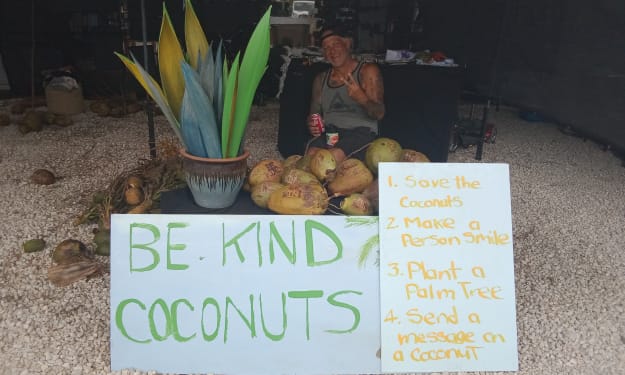 BE. KIND
COCONUTS
1. Save the
Coconuts
2. Make a
Person Smile
3. Plant a
Palm Tree
4. Send a
message on
a Coconut